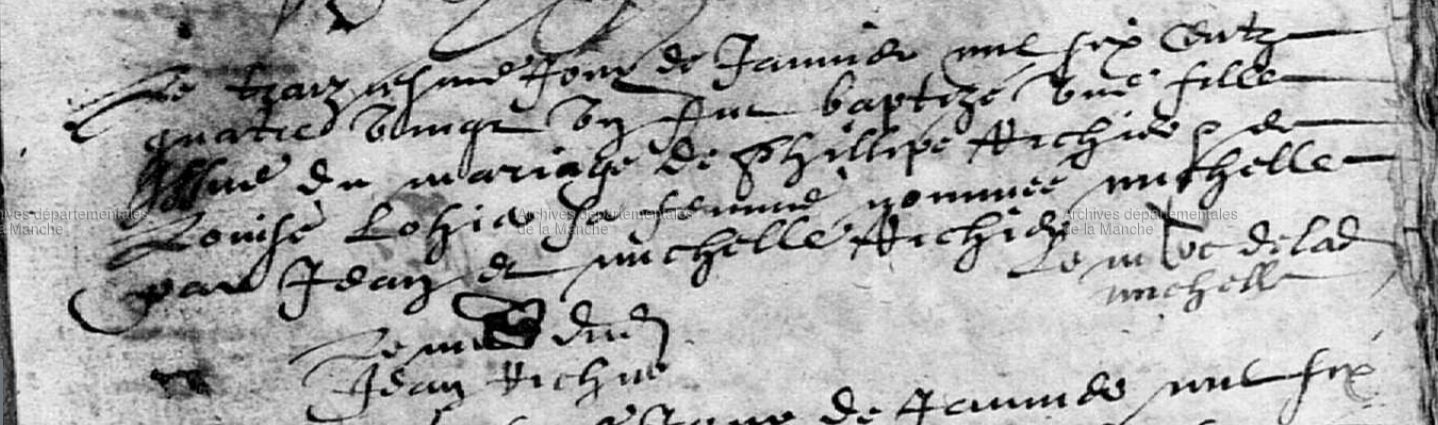 Le traiziesme Jour de Januier mil six centz
quatre vingt vn fut baptizé vne fille
Issue du mariage de Phillipe Richier & de
Louise Lohier sa femme nommee michelle
par Jean et michelle Richier
Le merc de lad
michelle
Le merc dud
Jean Richier
Jour de Januier mil six
Archives départementales
de la Manche
Archives départementales
de la Manche
Archives départementales
de la Manche